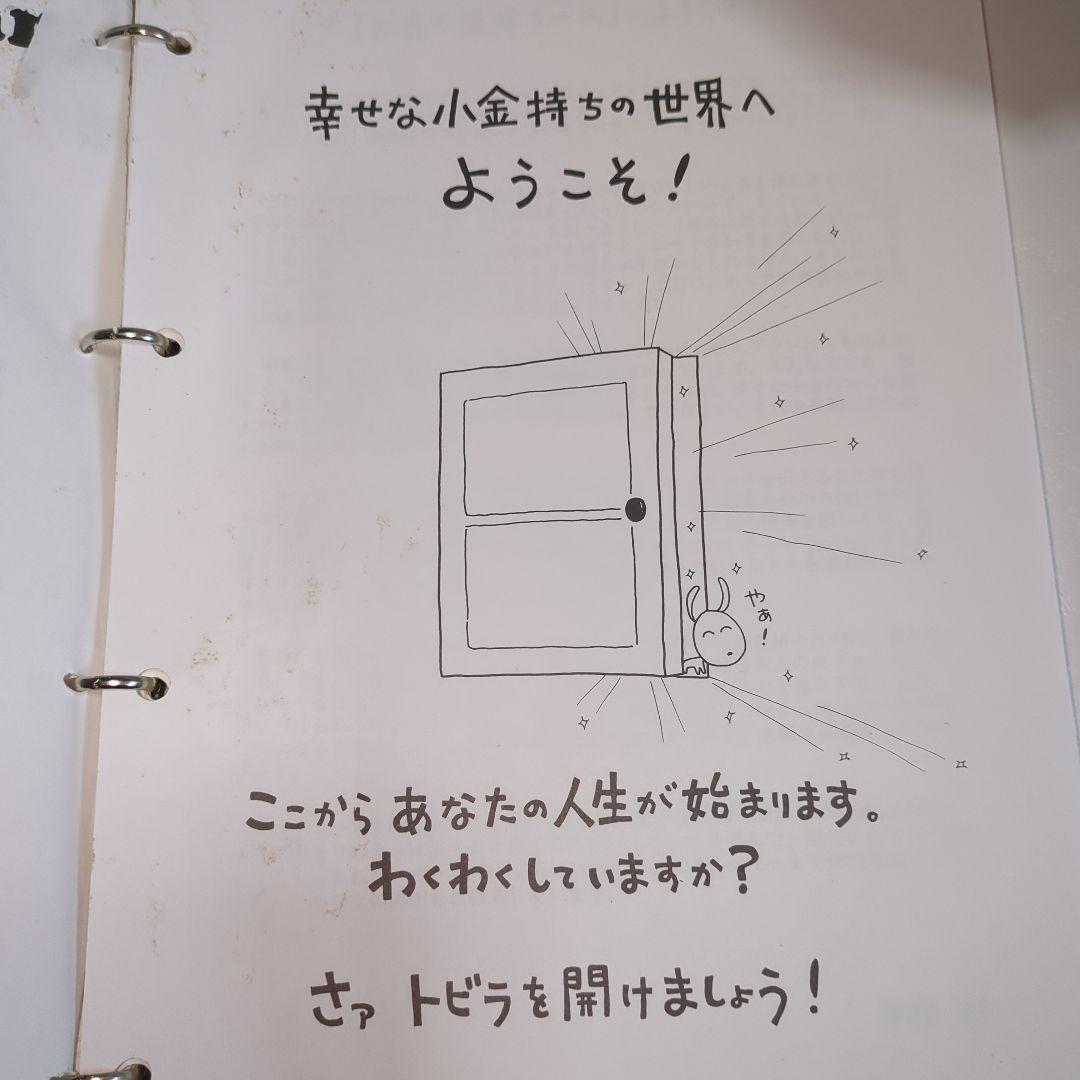 幸せな小金持ちの世界へ
ようこそ!
やぁ!
ここからあなたの人生が始まります。
わくわくしていますか?
さァ トビラを開けましょう!